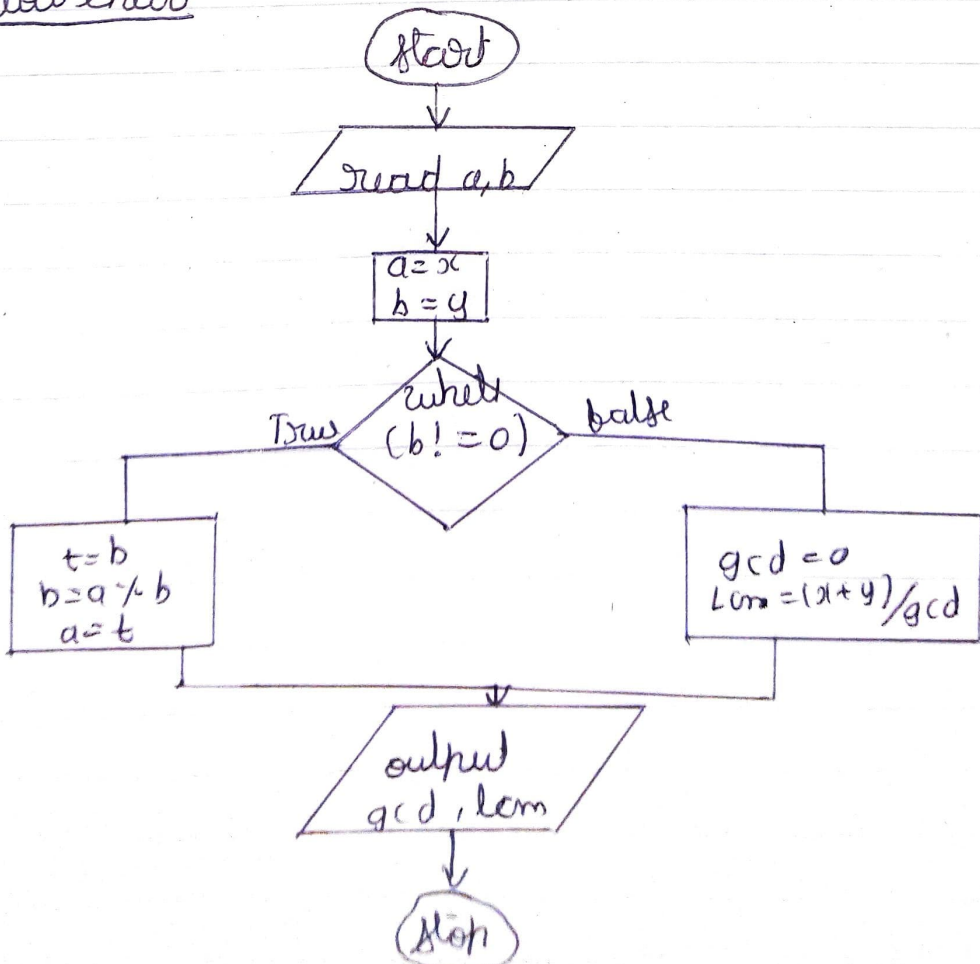 start
read a, b
a = x
b = y
while
(b! = 0)
True
false
t = b
b = a % b
a = t
gcd = 0
Lcm = (x + y)/gcd
output
gcd, lcm
stop